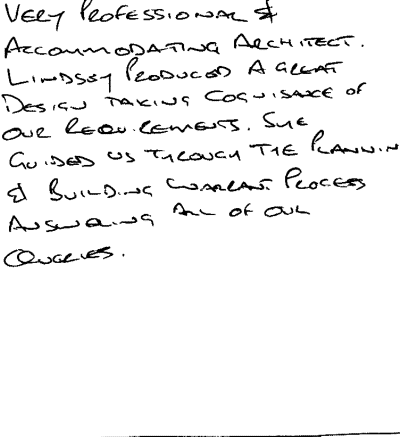 VERY PROFESSIONAL &
ACCOMMODATING ARCHITECT.
LINDSEY PRODUCED A GREAT
DESIGN TAKING COGNISANCE OF
OUR REQUIREMENTS. SHE
GUIDED US THROUGH THE PLANNIN
& BUILDING WARRANT PROCESS
ANSWERING ALL OF OUR
QUERIES.